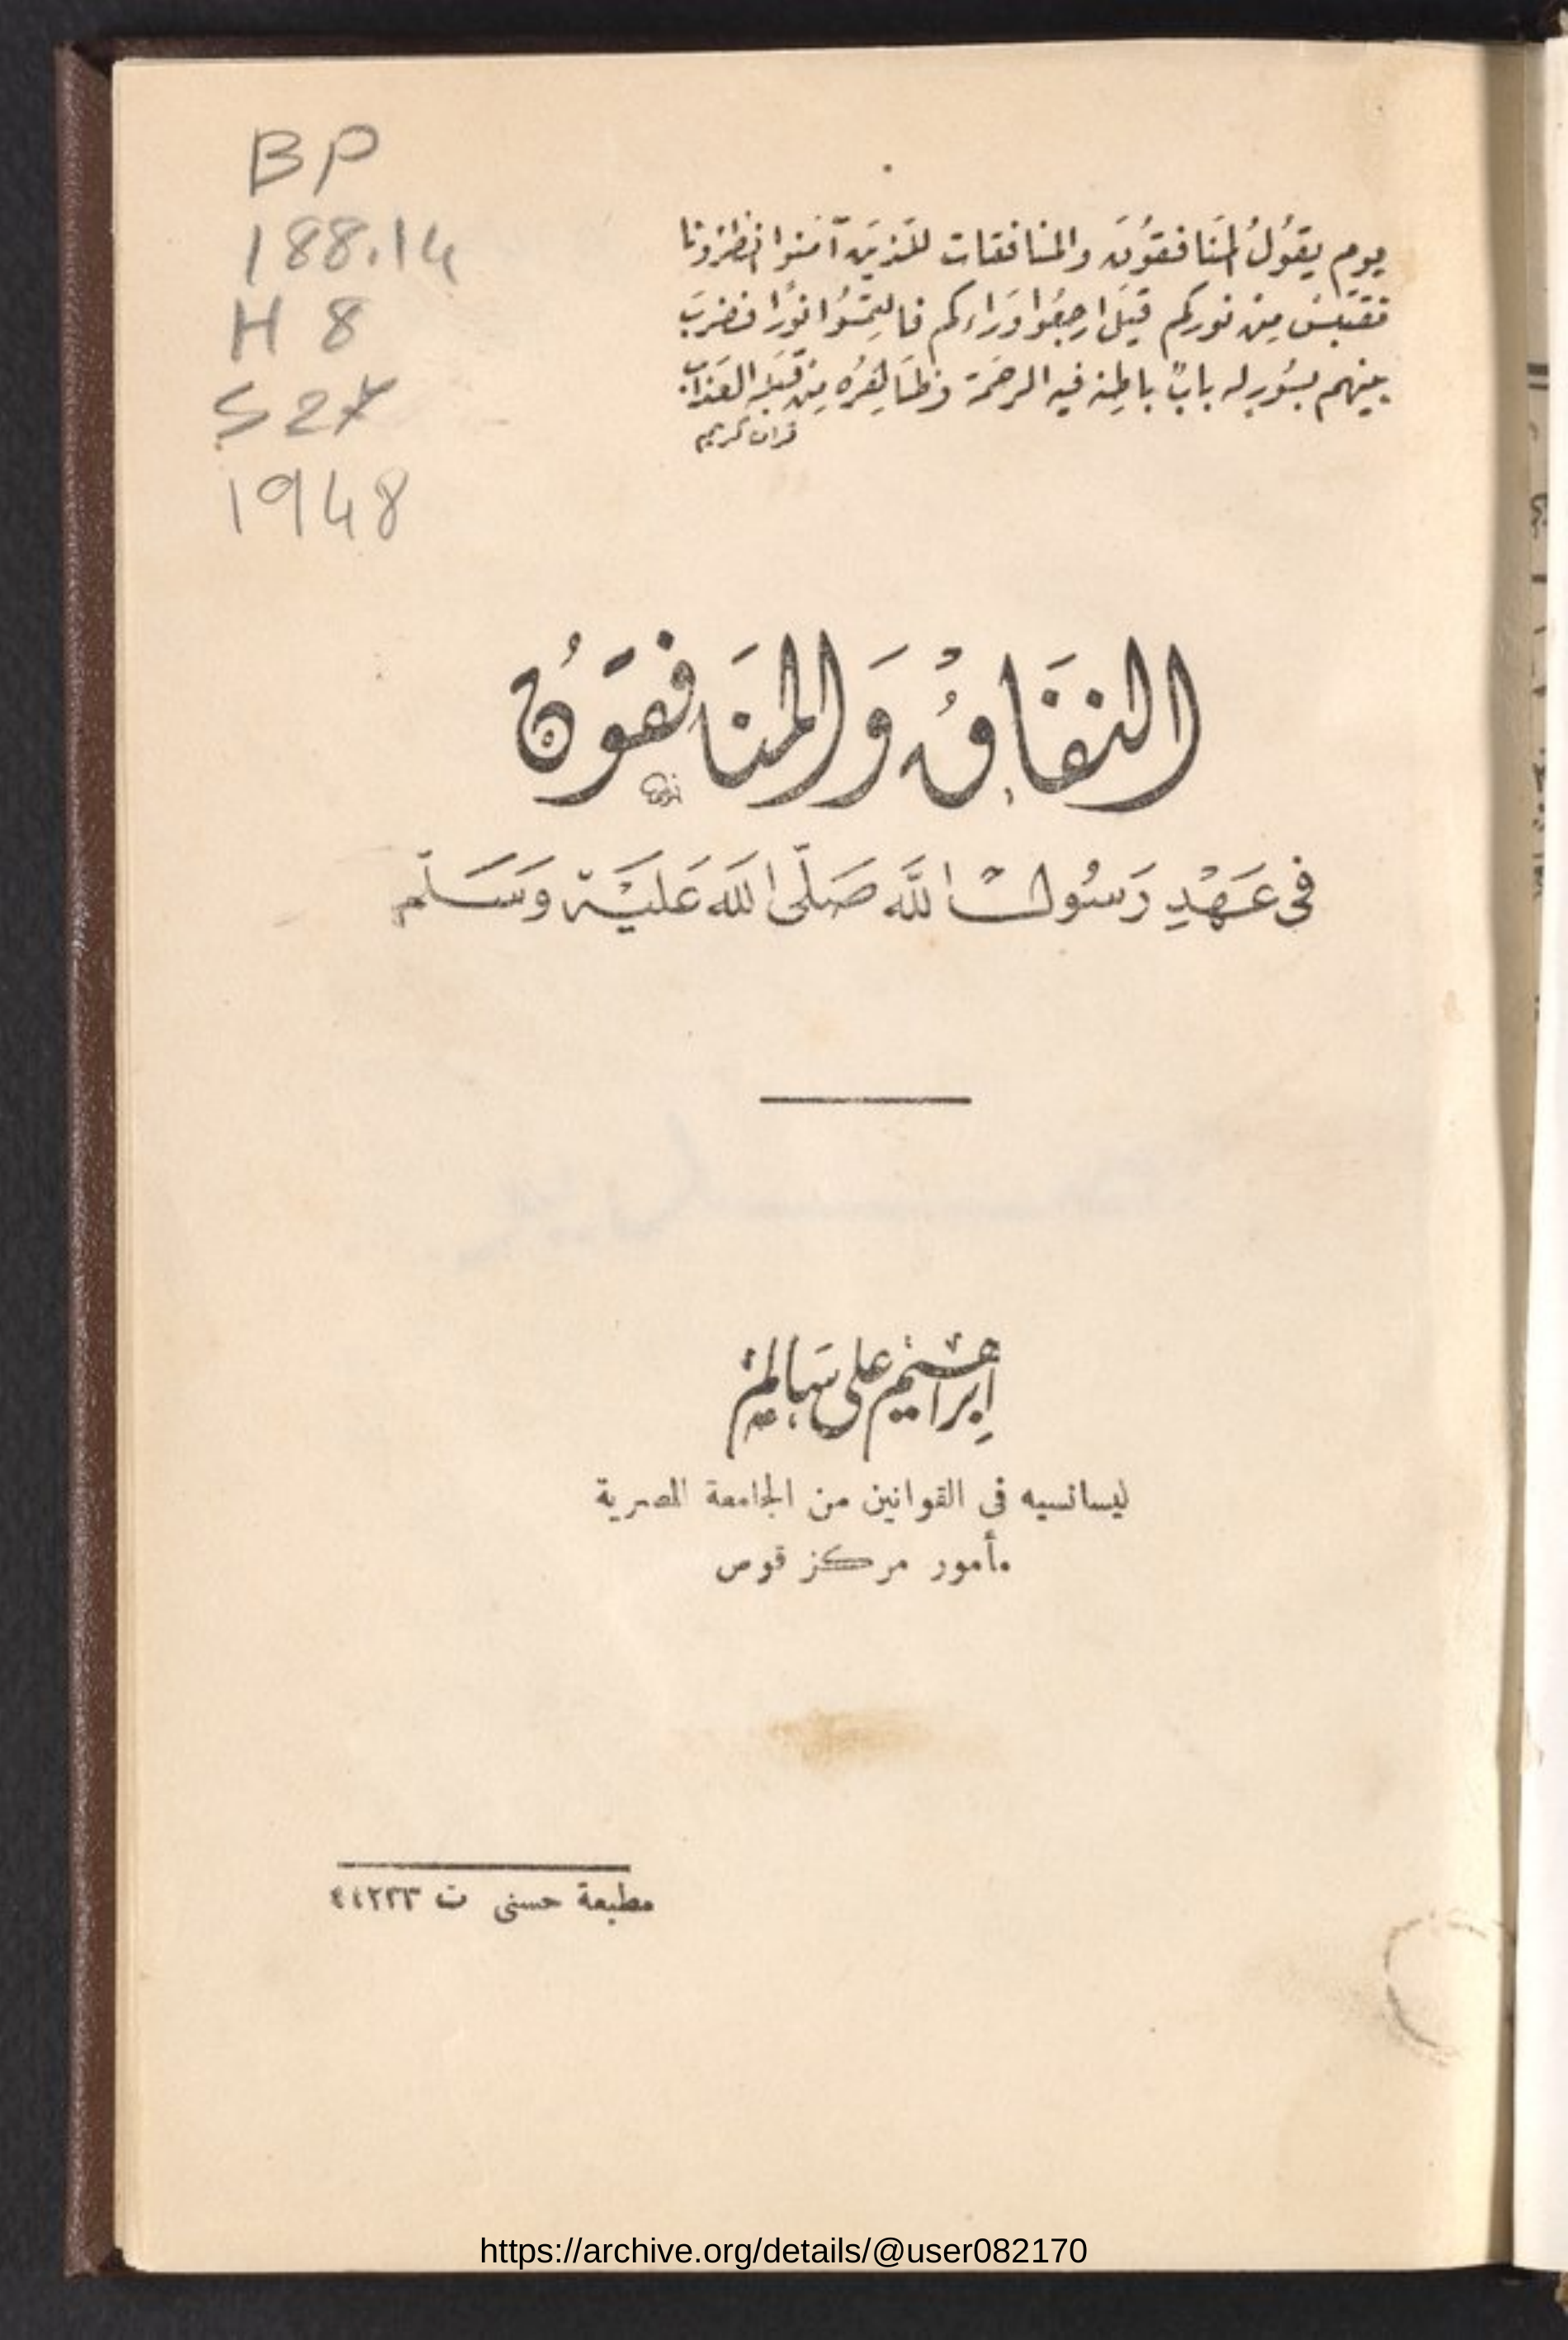 BP
188.14
H8
S2
1948
يوم يقُولُ المنَافقوُنَ والمنافقات للذينَ آمَنوا انظرُونا
نقتَبسْ مِنْ نوركم قيلَ ارجعُوا وَراءكم فالتِمسُوا نُورًا فضُربَ
بينهم بسُورٍ له بابٌ باطِنه فيه الرحمَة وَظَاهِرُه مِنْ قِبَلِه العَذابُ
قرآن كريم
النفَاقُ وَالمنَافقوُن
فى عَهْدِ رَسُولْ اللَّه صَلَّى اللَه عَليَهْ وَسَلّم
إبراهيم على سَالم
ليسانسيه فى القوانين من الجامعة المصرية
مأمور مركز قوص
مطبعة حسنى ت ٤٤٢٣٣
https://archive.org/details/@user082170